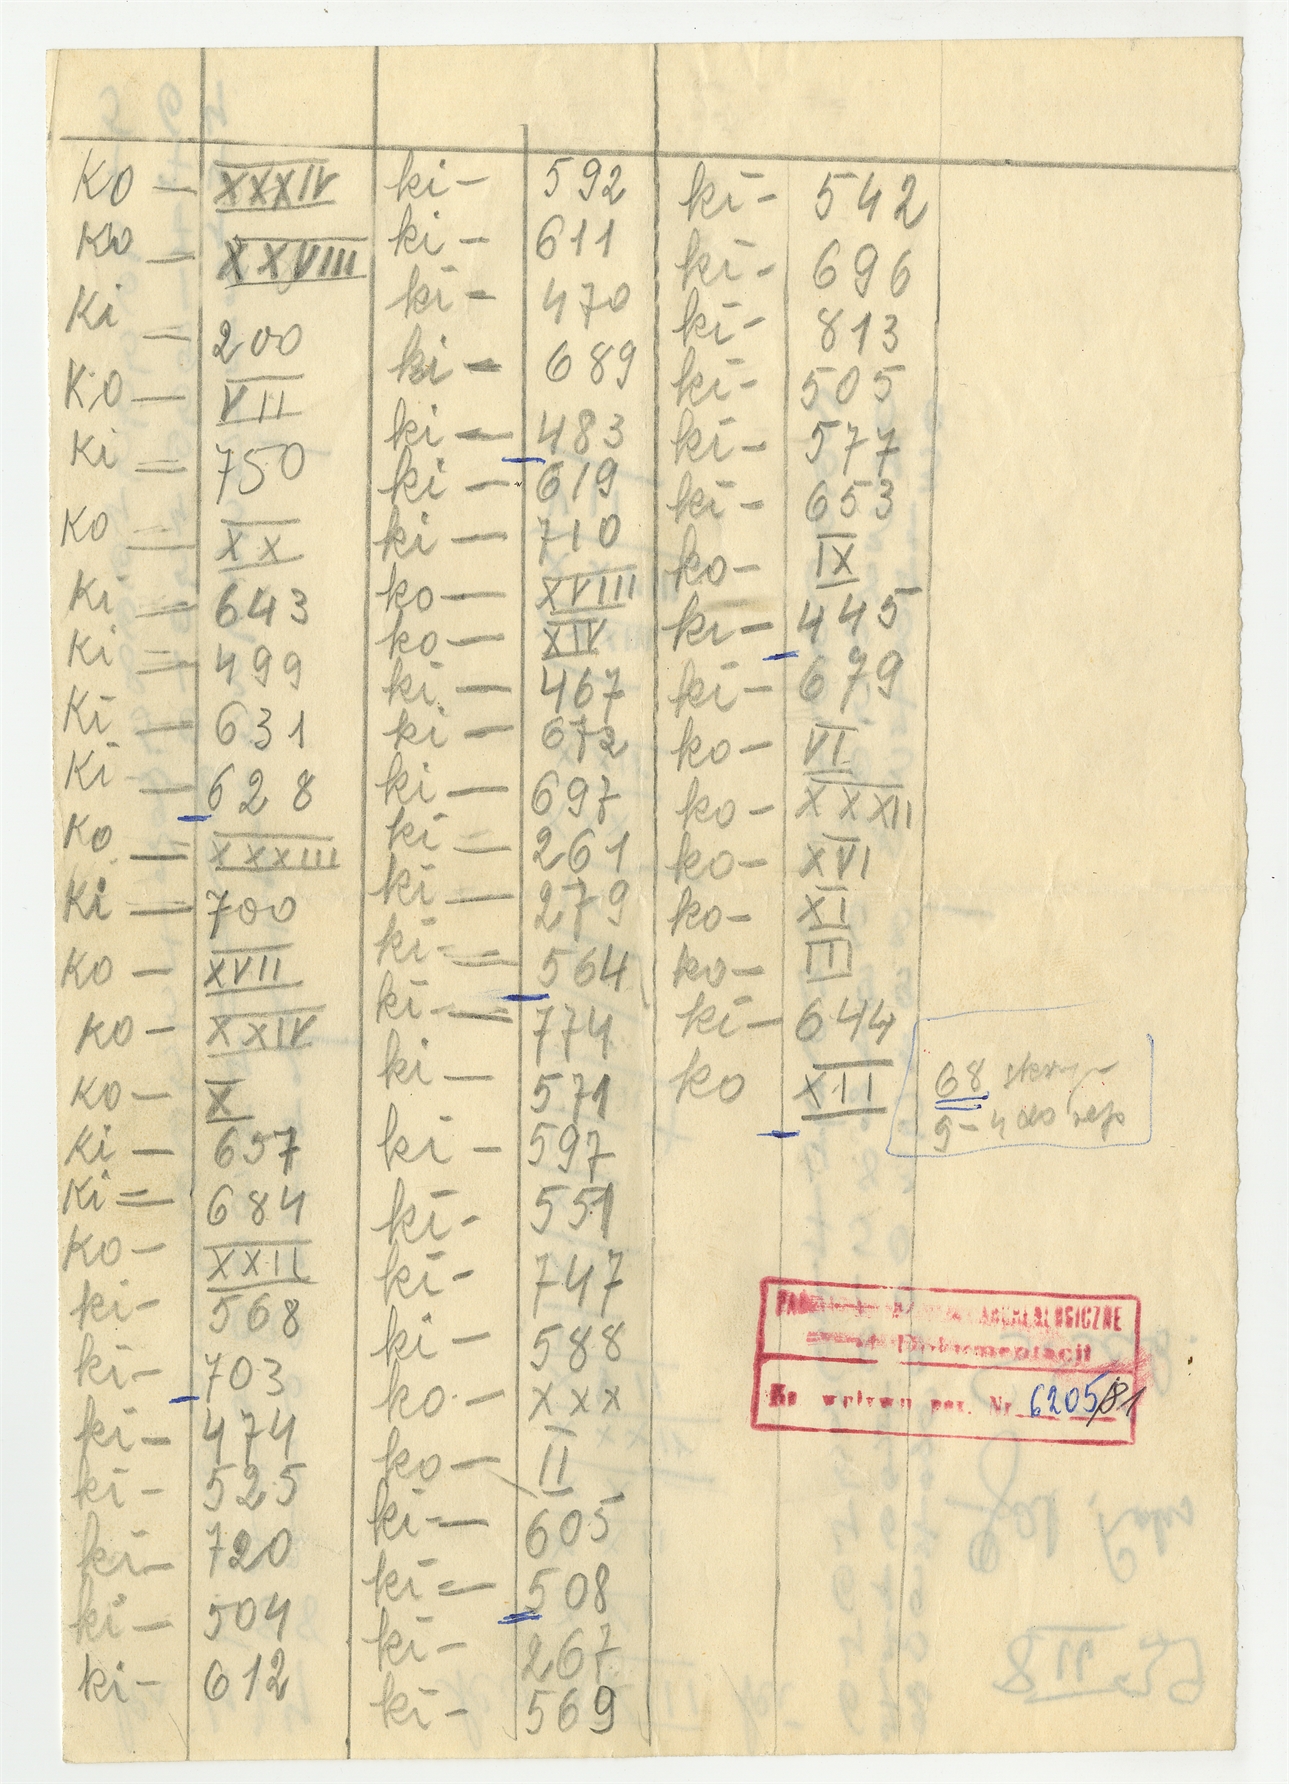 Ko - XXXIV
Ko - XXVIII
Ki = 200
Ko - VII
Ki = 750
Ko = XX
Ki = 643
Ki = 499
Ki = 631
Ki - 628
Ko - XXXIII
Ki - 700
Ko - XVII
Ko - XXIV
Ko - X
Ki - 657
Ki = 684
Ko - XXII
ki - 568
ki - 703
ki - 474
ki - 525
ki - 720
ki - 504
ki - 612
ki - 592
ki - 611
ki - 470
ki - 689
ki - 483
ki - 619
ki - 710
ko - XVIII
ko - XIV
ki - 467
ki - 672
ki - 697
ki = 261
ki - 279
ki = 564
ki = 774
ki - 571
ki - 597
ki - 551
ki - 747
ki - 588
ko - XXX
ko - II
ki - 605
ki = 508
ki - 267
ki - 569
ki - 542
ki - 696
ki - 813
ki - 505
ki - 577
ki - 653
ko - IX
ki - 445
ki - 679
ko - VI
ko - XXXII
ko - XVI
ko - XI
ko - III
ki - 644
ko XII
68
5 - 4 do
ARCHEOLOGICZNE
Dokumentacji
Ks wpływu poz. Nr 6205/81